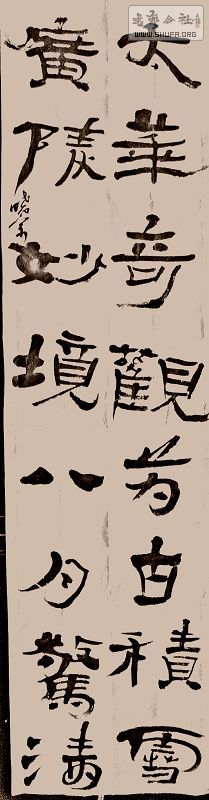 書法公社
WWW.SHUFA.ORG
太華奇觀萬古積雪
廣陵妙境八月驚濤